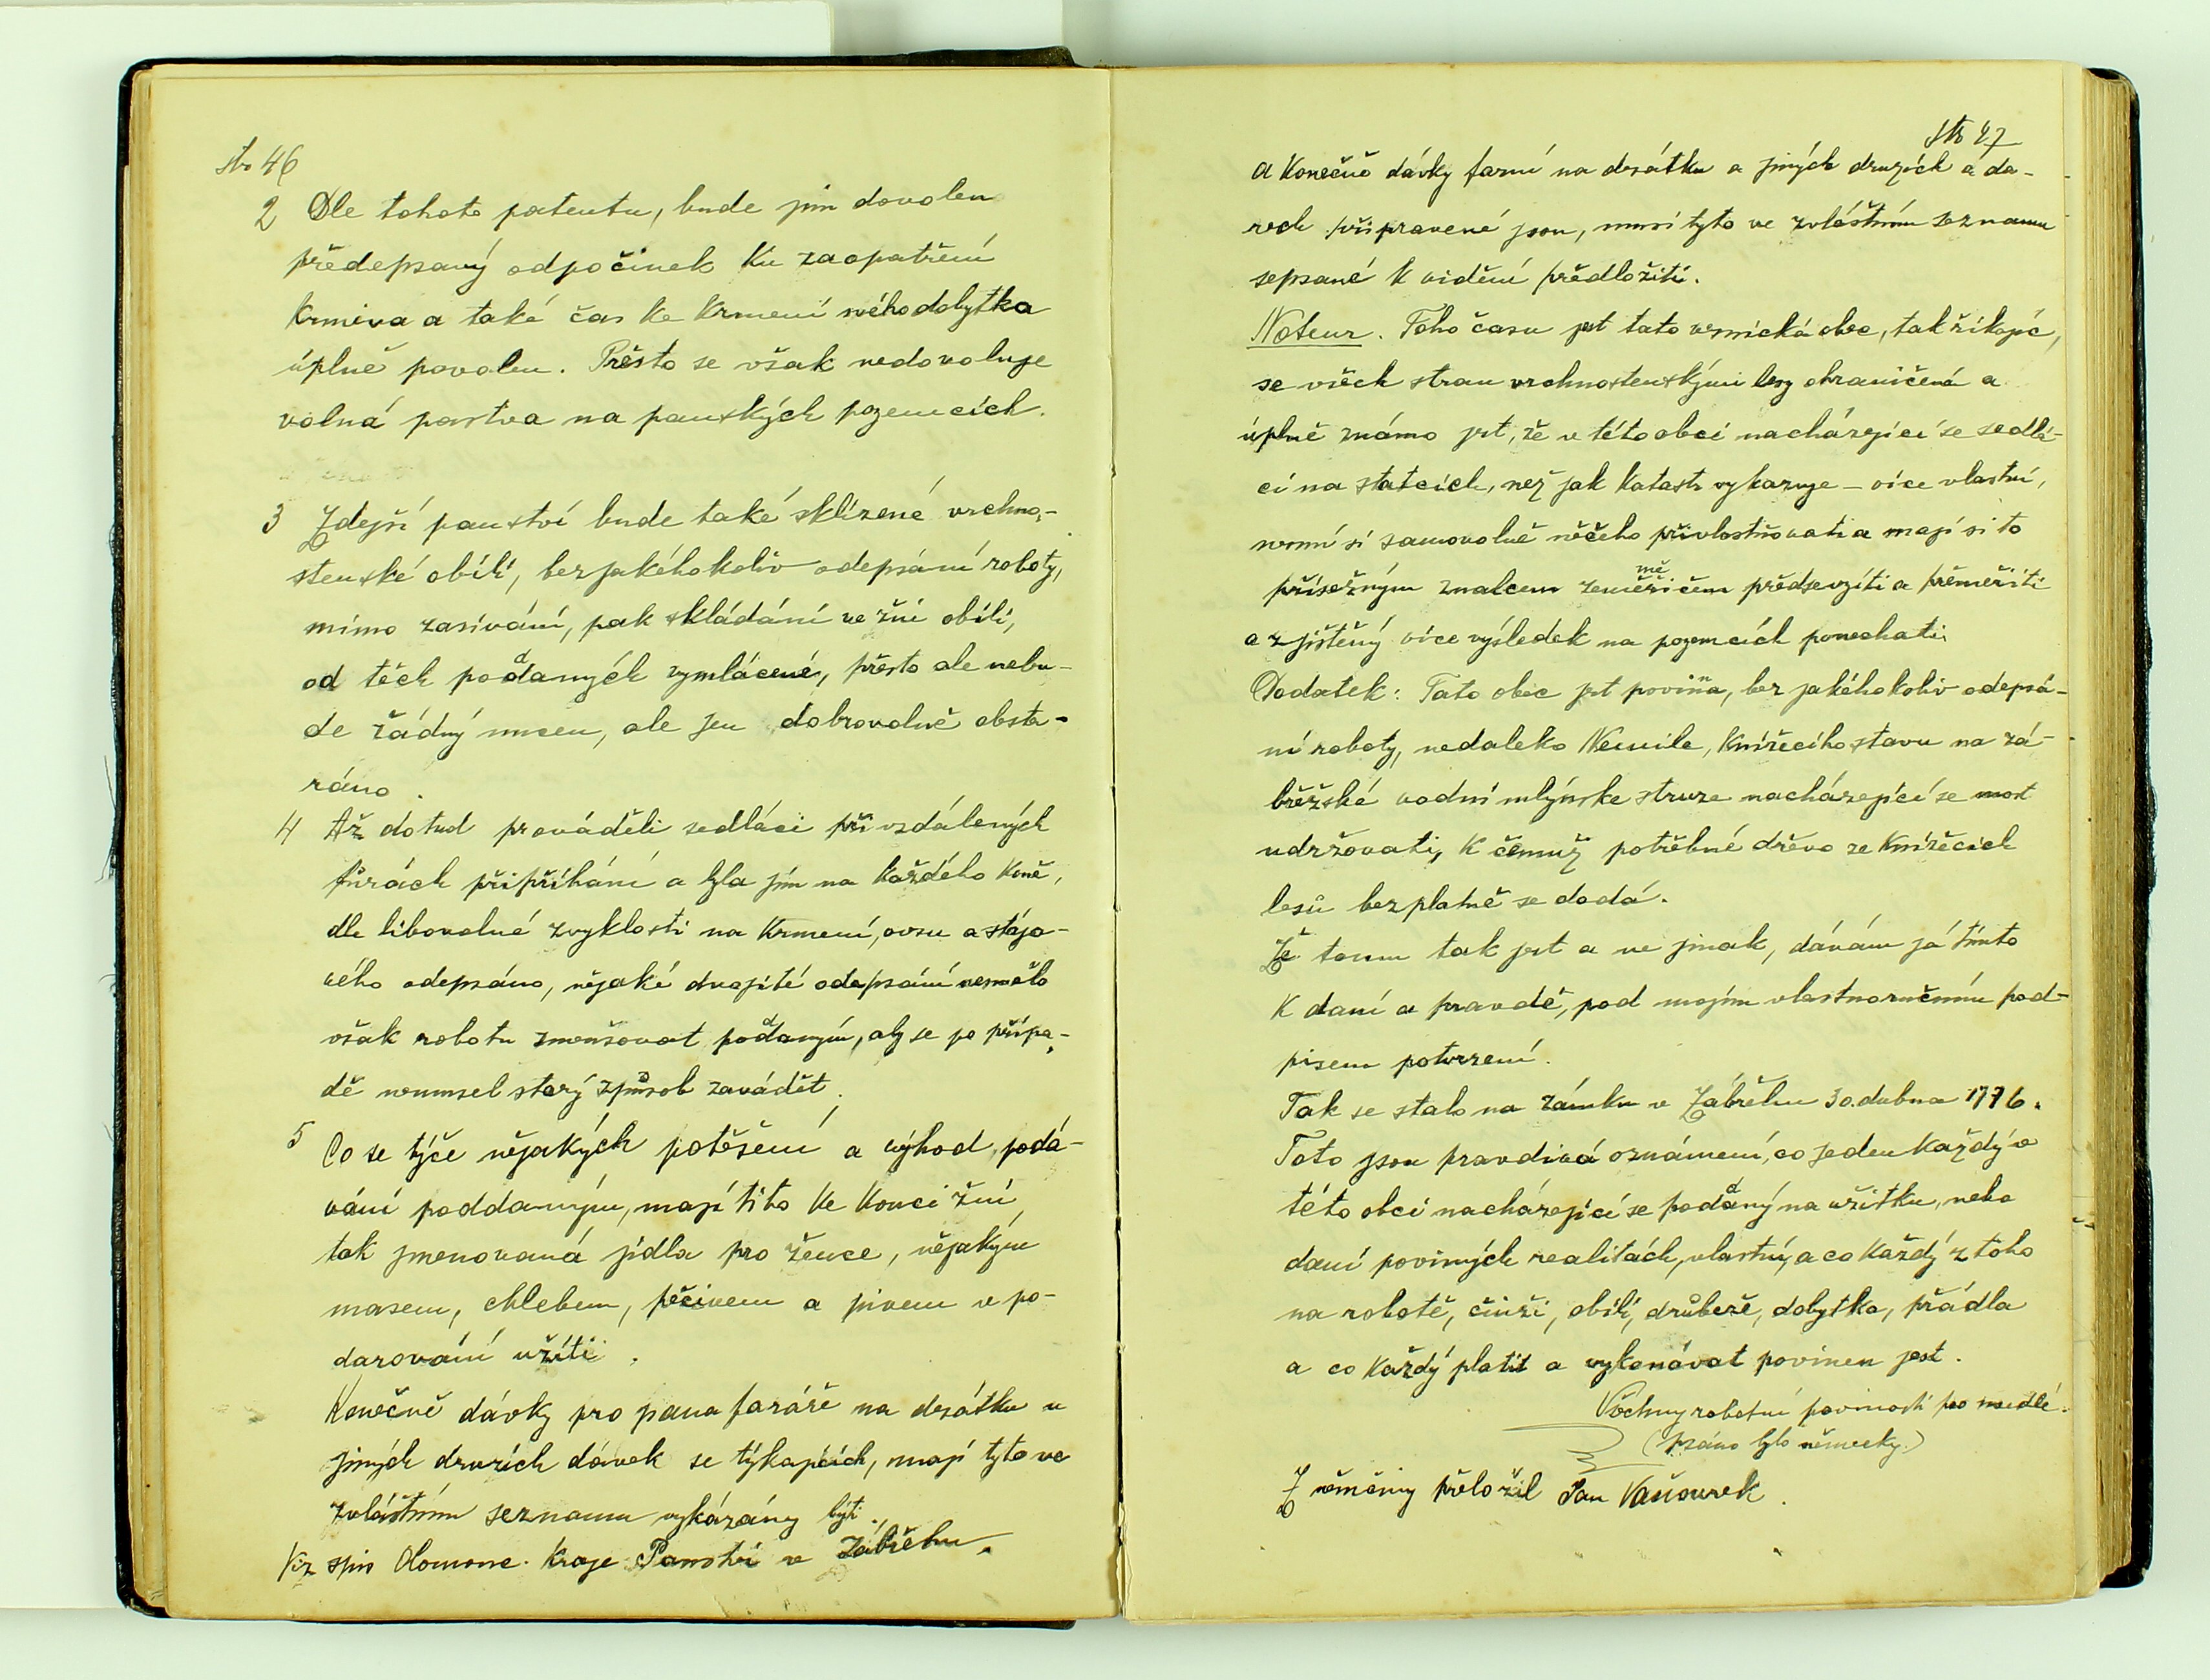 str 46
2 Dle tohoto patentu, bude jim dovolen
předepsaný odpočinek ku zaopatření
krmiva a také čas ke krmení svého dobytka
úplně povolen. Přesto se však nedovoluje
volná pastva na panských pozemcích.
3 Zdejší panství bude také sklizené vrchno-
stenské obilí, bez jakéhokoliv odepsání roboty,
mimo zasívání, pak skládání ve žni obilí,
od těch poddaných vymlácené, přesto ale nebu-
de žádný nucen, ale jen dobrovolně obsta-
ráno.
4 Až dotud prováděli sedláci při vzdálených
fůrách připříhání a byla jim na každého koně,
dle libovolné zvyklosti na krmení, ovsu a stájo-
vého odepsáno, nějaké dvojité odepsání nemělo
však robotu zmenšovat poddaným, aby se po přípa-
dě nemusel starý způsob zavádět.
5 Co se týče nějakých potěšení a výhod, podá-
vání poddaným, mají tito ke konci žní
tak jmenovaná jídla pro žence, nějakým
masem, chlebem, pečivem a pivem v po-
darování užíti.
Konečně dávky pro pana faráře na desátku u
jiných druzích dávek se týkajících, mají tyto ve
zvláštním seznamu vykázány býti.
Viz spis Olomouc. kraje Panství v Zábřehu.
str 47
a konečně dávky farní na desátku a jiných druzích a da-
rech připravené jsou, musí tyto ve zvláštním seznamu
sepsané k vidění předložiti.
Noteur. Toho času jest tato vesnická obec, tak říkajíc,
se všech stran vrchnostenskými lesy ohraničená a
úplně známo jest, že v této obci nacházející se sedlá-
ci na statcích, než jak katastr vykazuje – více vlastní,
nesmí si samovolně něčeho přivlastňovati a mají si to
přísežným znalcem zeměměřičem předsevzíti a přeměřiti
a zjištěný více výsledek na pozemcích ponechati.
Dodatek: Tato obec jest poviňa, bez jakéhokoliv odepsá-
ní roboty, nedaleko Nemile, knížecího stavu na zá-
břežské vodní mlýnske struze nacházející se most
udržovati, k čemuž potřebné dřevo ze knížecích
lesů bezplatně se dodá.
Že tomu tak jest a ne jinak, dávám já tímto
k daní a pravdě, pod mojím vlastnoručním pod-
pisem potvrzení.
Tak se stalo na zámku v Zábřehu 30. dubna 1776.
Toto jsou pravdivá oznámení, co jeden každý v
této obci nacházející se poddaný na užitku, nebo
daní poviných realitách, vlastní, a co každý z toho
na robotě, činži, obilí, drůbeže, dobytka, přádla
a co každý platit a vykonávat povinen jest.
Všechny robotní povinosti
(psáno bylo německy.)
Z němčiny přeložil Jan Vaňourek.